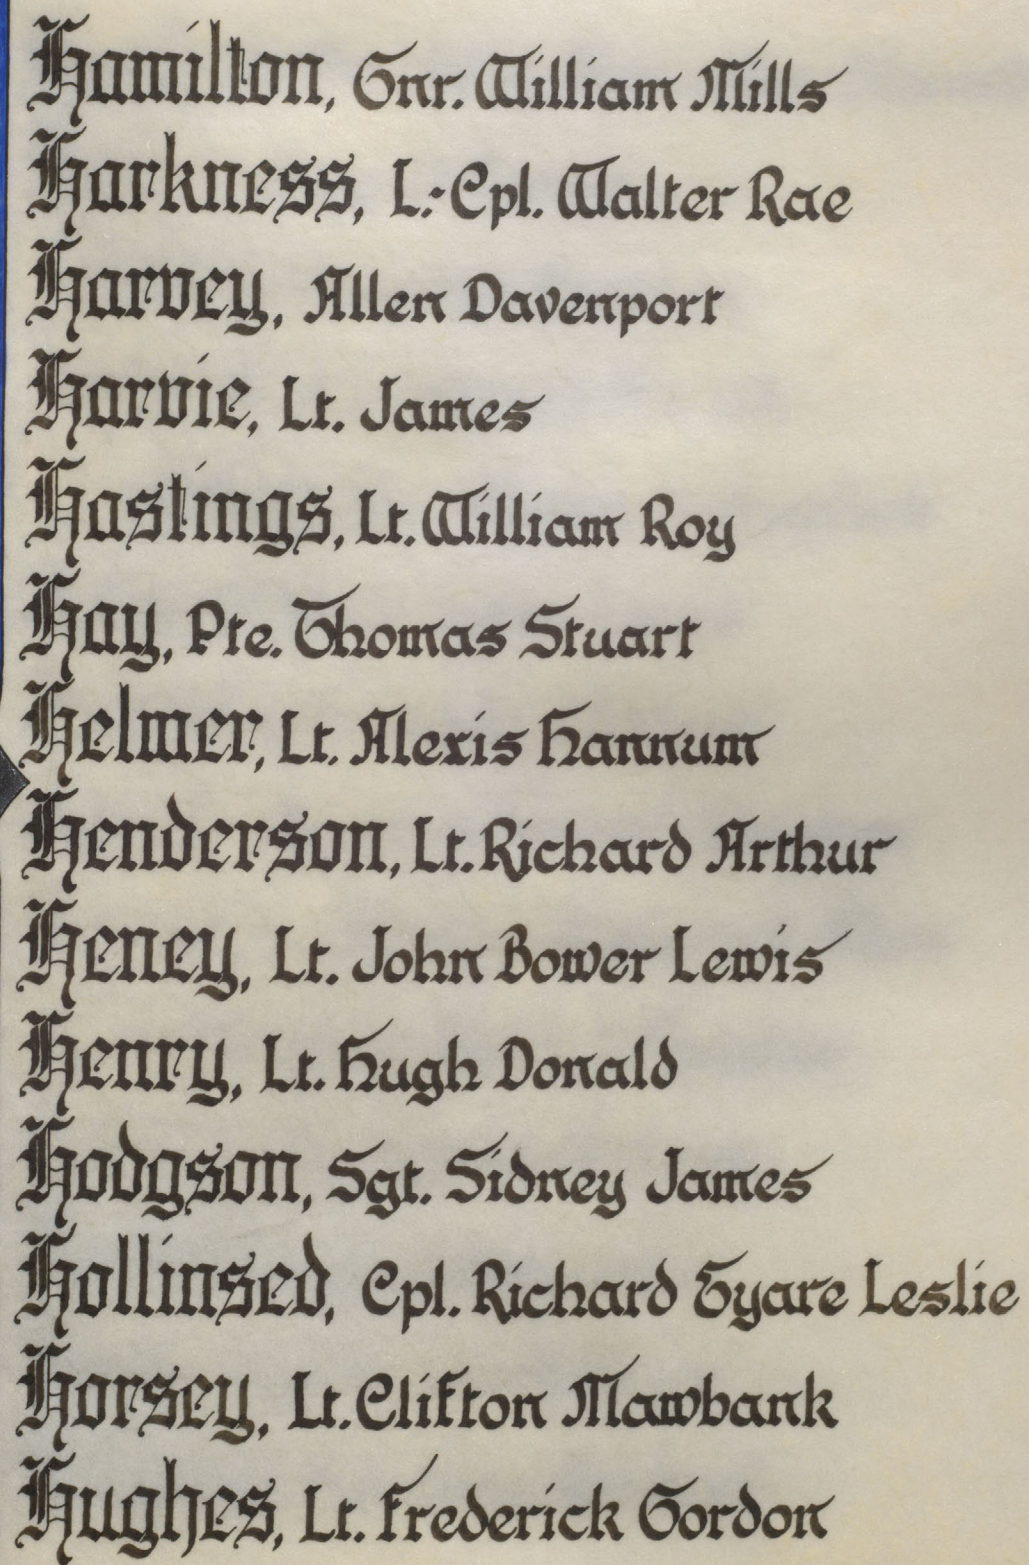 Hamilton, Gnr. William Mills
Harkness, L.-Cpl. Walter Rae
Harvey, Allen Davenport
Harvie, Lt. James
Hastings, Lt. William Roy
Hay, Pte. Thomas Stuart
Helmer, Lt. Alexis Hannum
Henderson, Lt. Richard Arthur
Heney, Lt. John Bower Lewis
Henry, Lt. Hugh Donald
Hodgson, Sgt. Sidney James
Hollinsed, Cpl. Richard Gyare Leslie
Horsey, Lt. Clifton Mawbank
Hughes, Lt. Frederick Gordon